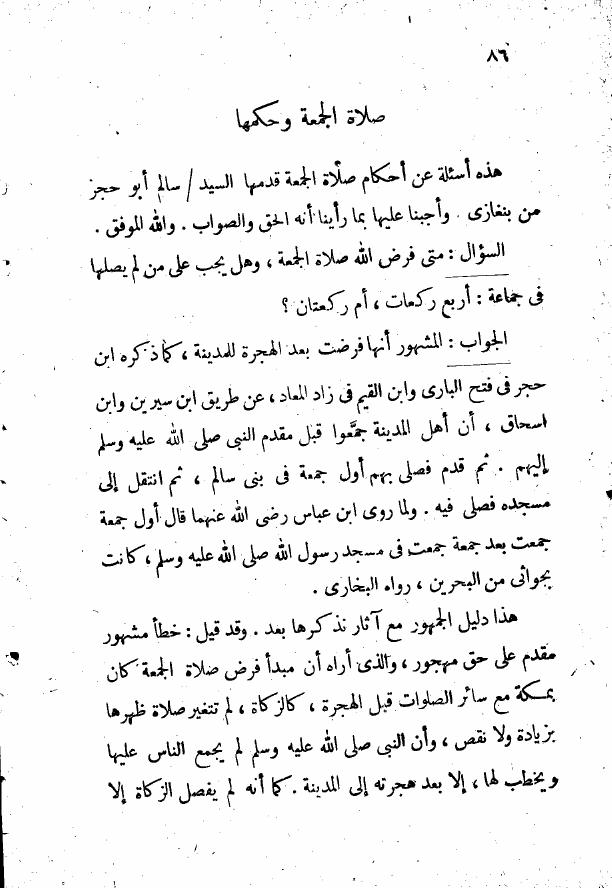 ٨٦
صلاة الجمعة وحكمها
هذه أسئلة عن أحكام صلاة الجمعة قدمها السيد / سالم أبو حجز
من بنغازى . وأجبنا عليها بما رأينا أنه الحق والصواب . والله الموفق .
السؤال : متى فرض الله صلاة الجمعة ، وهل يجب على من لم يصلها
فى جماعة : أربع ركعات ، أم ركعتان ؟
الجواب : المشهور أنها فرضت بعد الهجرة للمدينة ، كما ذكره ابن
حجر فى فتح البارى وابن القيم فى زاد المعاد ، عن طريق ابن سيرين وابن
اسحاق ، أن أهل المدينة جمَّعوا قبل مقدم النبى صلى الله عليه وسلم
إليهم . ثم قدم فصلى بهم أول جمعة فى بنى سالم ، ثم انتقل إلى
مسجده فصلى فيه . ولما روى ابن عباس رضى الله عنهما قال أول جمعة
جمعت بعد جمعة جمعت فى مسجد رسول الله صلى الله عليه وسلم ، كانت
بجواثى من البحرين ، رواه البخارى .
هذا دليل الجمهور مع آثار نذكرها بعد . وقد قيل : خطأ مشهور
مقدم على حق مهجور ، والذى أراه أن مبدأ فرض صلاة الجمعة كان
بمكة مع سائر الصلوات قبل الهجرة ، كالزكاة ، لم تتغير صلاة ظهرها
بزيادة ولا نقص ، وأن النبى صلى الله عليه وسلم لم يجمع الناس عليها
ويخطب لها ، إلا بعد هجرته إلى المدينة . كما أنه لم يفصل الزكاة إلا